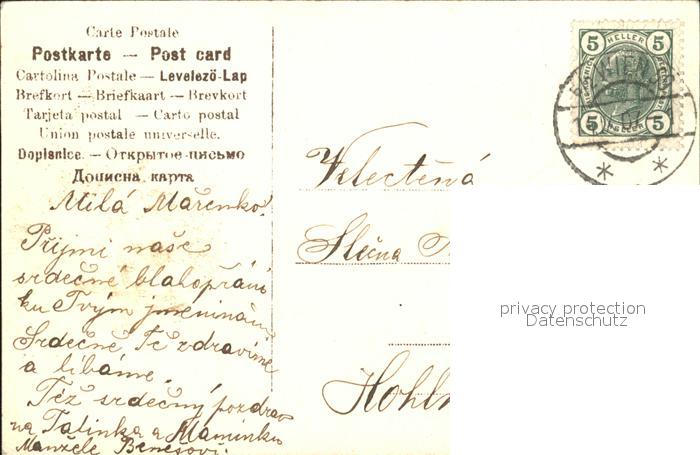 Carte Postale
Postkarte — Post card
Cartolina Postale — Levelező-Lap
Brefkort — Briefkaart — Brevkort
Tarjeta postal — Carto postal
Union postale universelle.
Dopisnice. — Открытое-письмо
Дописна карта
Milá Mařenko!
Přijmi naše
srdečné blahopřání
ku Tvým jmeninám
Srdečně Tě zdravíme
a líbáme.
Též srdečný pozdrav
na Tatínka a Maminku
Manželé Benešovi.
5 HELLER 5
5 HELLER 5
07
Velectěná
Slečna
Hohl
privacy protection
Datenschutz